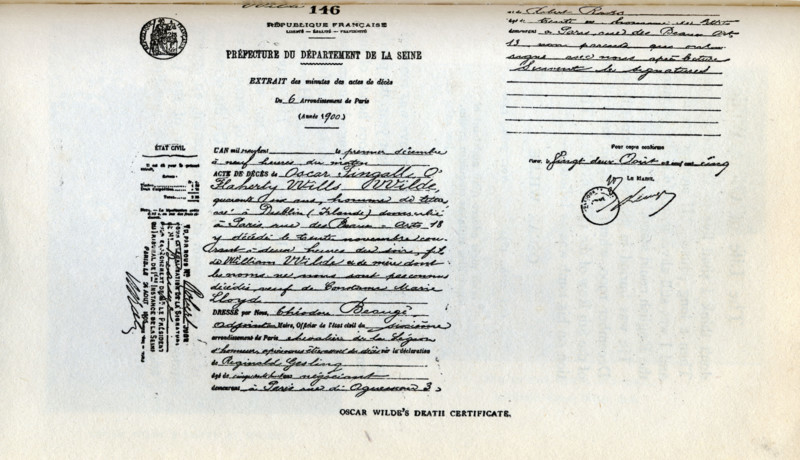 146
RÉPUBLIQUE FRANÇAISE
LIBERTÉ — ÉGALITÉ — FRATERNITÉ
PRÉFECTURE DU DÉPARTEMENT DE LA SEINE
EXTRAIT des minutes des actes de décès
Du 6 Arrondissement de Paris
(Année 1900)
ÉTAT CIVIL
L'AN mil neuf cent, le premier décembre
à neuf heures du matin
ACTE DE DÉCÈS de Oscar Fingall O'
Flaherty Wills Wilde,
quarante six ans, homme de lettres
né à Dublin (Irlande) domicilié
à Paris rue des Beaux-Arts 13
y décédé le trente novembre cou-
rant à deux heures du soir, fil
de William Wilde et de mère dont
les noms ne nous sont pas connus
décédés, veuf de Constance Marie
Lloyd
DRESSÉ par Nous, Théodore Beaugé
adjoint au Maire, Officier de l'état civil du sixième
arrondissement de Paris chevalier de la Légion
d'honneur, sur la déclaration
de Reginald Gesling
âgé de négociant
demeurant à Paris rue d'Aguesseau 3,
et de Robert Ross
âgé de trente ans homme de lettres
demeurant à Paris rue des Beaux Arts
13 non parents qui ont
signé avec nous après lecture
Suivent les signatures
Pour copie conforme
Paris, le vingt deux Août mil neuf cent cinq
LE MAIRE,
OSCAR WILDE'S DEATH CERTIFICATE.